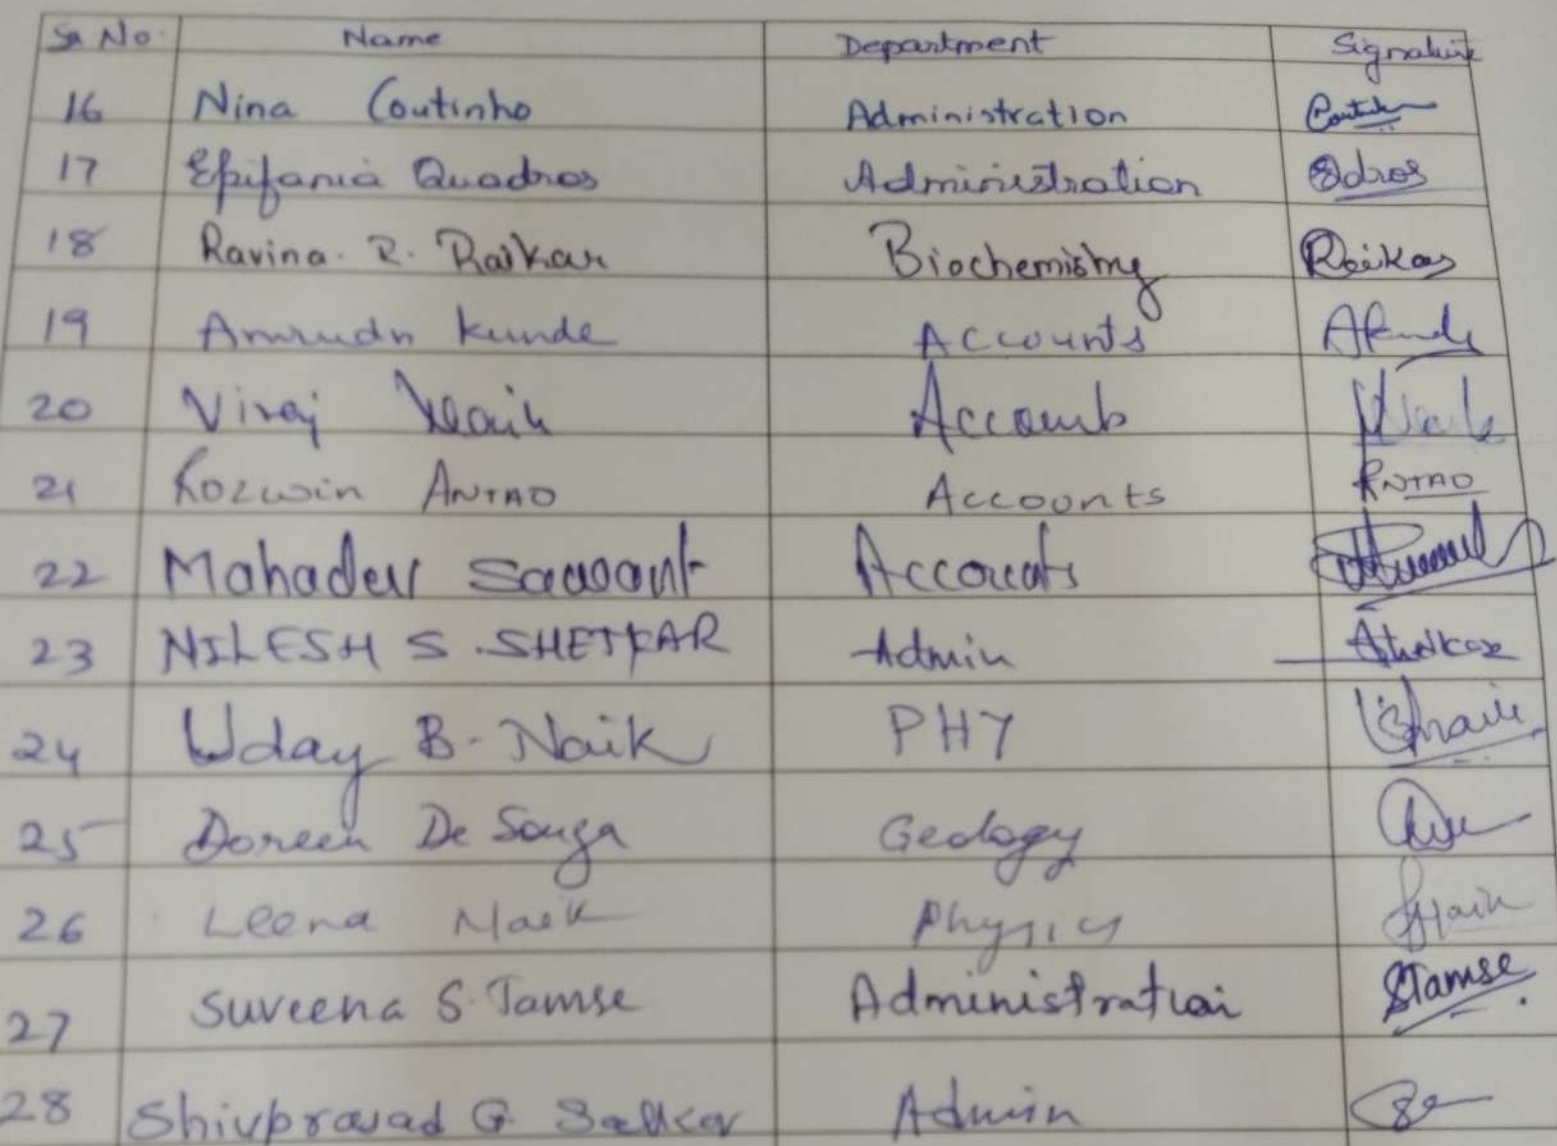 Sr No. Name Department Signature
16 Nina Coutinho Administration
17 Epifania Quadros Administration Qdros
18 Ravina. R. Raikar Biochemistry Raikar
19 Kunde Accounts
20 Viraj Naik Accounts
21 Rozwin ANTAO Accounts ANTAO
22 Mahadev Sawant Accounts
23 NILESH S. SHETKAR Admin
24 Uday B. Naik PHY
25 Doreen De Souza Geology
26 Leena Naik Physics
27 Suveena S. Tamse Administration STamse
28 Shivprasad G. Admin